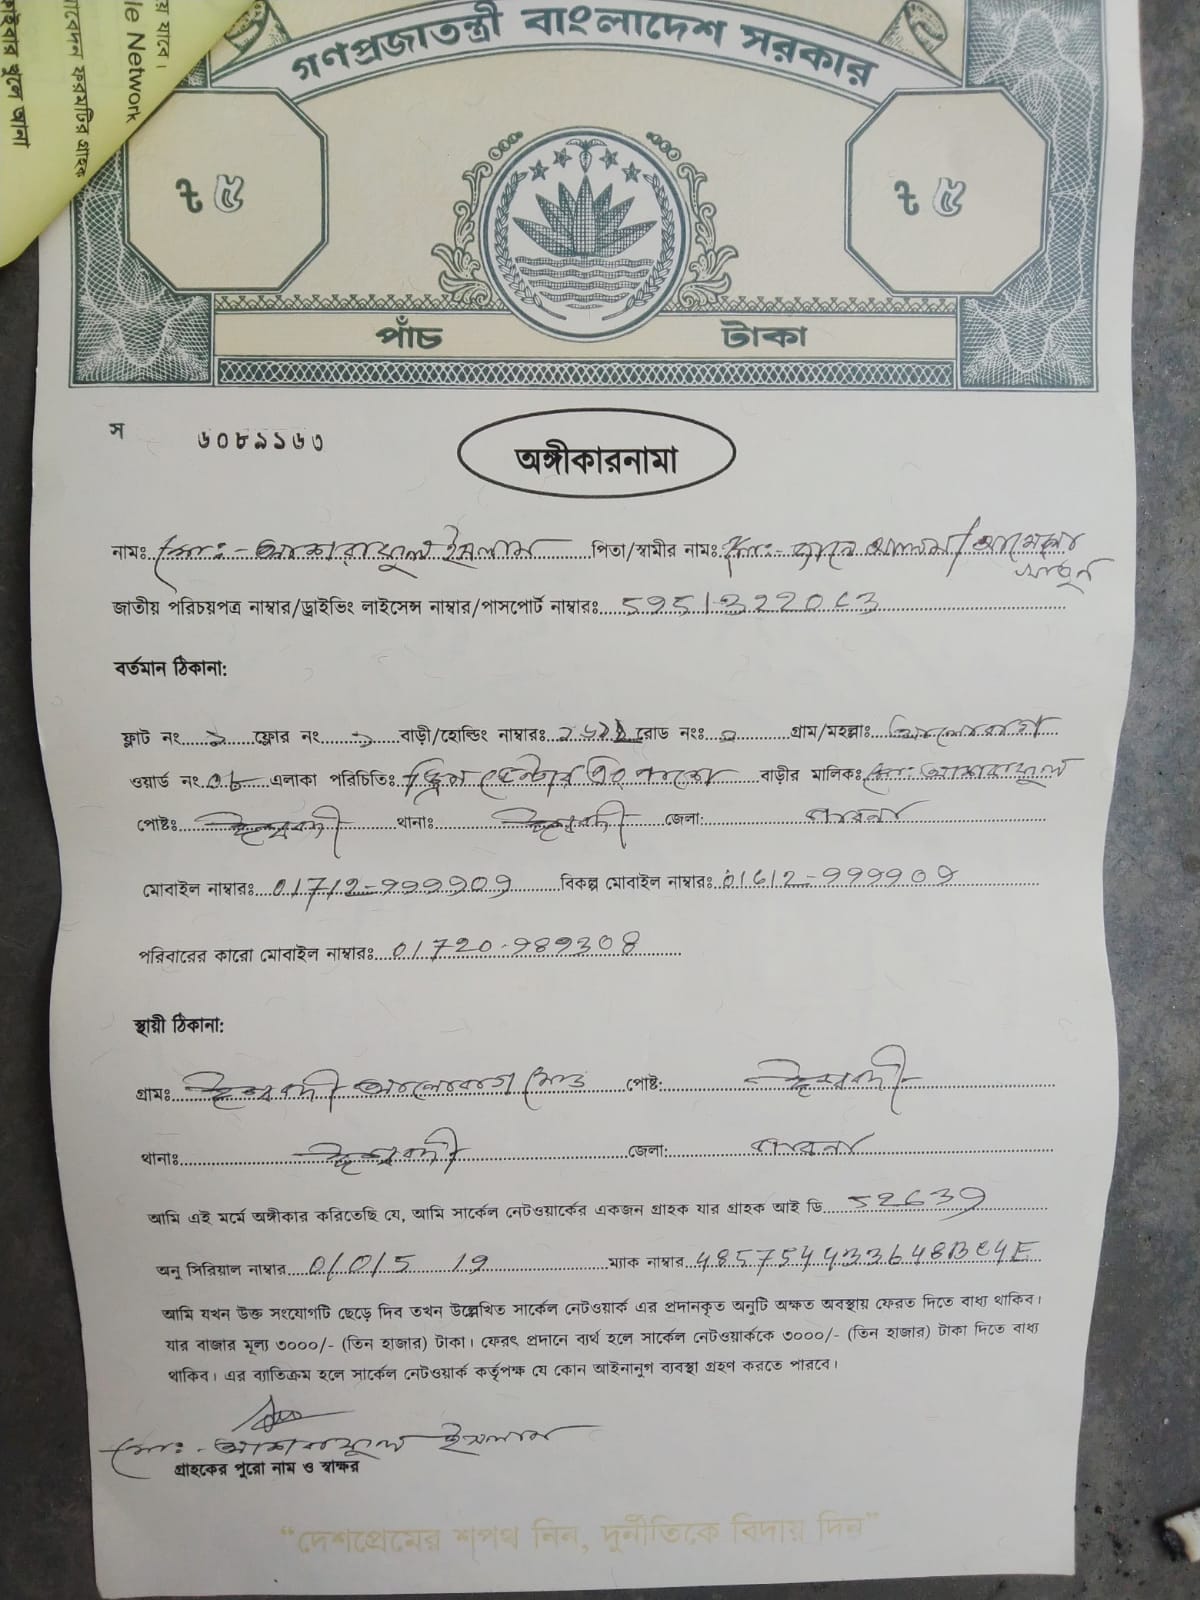 য় যাবে।
le Network
াবেদন ফরমটির গ্রাহক
গণপ্রজাতন্ত্রী বাংলাদেশ সরকার
৳ ৫
৳ ৫
পাঁচ টাকা
স ৬০৮৯১৬৩
অঙ্গীকারনামা
নামঃ মোঃ- আশরাফুল ইসলাম পিতা/স্বামীর নামঃ মোঃ-
জাতীয় পরিচয়পত্র নাম্বার/ড্রাইভিং লাইসেন্স নাম্বার/পাসপোর্ট নাম্বারঃ
বর্তমান ঠিকানা:
ফ্লাট নং ফ্লোর নং বাড়ী/হোল্ডিং নাম্বারঃ রোড নংঃ গ্রাম/মহল্লাঃ
ওয়ার্ড নং এলাকা পরিচিতিঃ বাড়ীর মালিকঃ মোঃ আশরাফুল
পোষ্টঃ ঈশ্বরদী থানাঃ ঈশ্বরদী জেলা: পাবনা
মোবাইল নাম্বারঃ 01712-999909 বিকল্প মোবাইল নাম্বারঃ 01612-999909
পরিবারের কারো মোবাইল নাম্বারঃ 01720-989308
স্থায়ী ঠিকানা:
গ্রামঃ ঈশ্বরদী পোষ্ট: ঈশ্বরদী
থানাঃ ঈশ্বরদী জেলা: পাবনা
আমি এই মর্মে অঙ্গীকার করিতেছি যে, আমি সার্কেল নেটওয়ার্কের একজন গ্রাহক যার গ্রাহক আই ডি 52639
অনু সিরিয়াল নাম্বার ম্যাক নাম্বার
আমি যখন উক্ত সংযোগটি ছেড়ে দিব তখন উল্লেখিত সার্কেল নেটওয়ার্ক এর প্রদানকৃত অনুটি অক্ষত অবস্থায় ফেরত দিতে বাধ্য থাকিব।
যার বাজার মূল্য ৩০০০/- (তিন হাজার) টাকা। ফেরৎ প্রদানে ব্যর্থ হলে সার্কেল নেটওয়ার্ককে ৩০০০/- (তিন হাজার) টাকা দিতে বাধ্য
থাকিব। এর ব্যতিক্রম হলে সার্কেল নেটওয়ার্ক কর্তৃপক্ষ যে কোন আইনানুগ ব্যবস্থা গ্রহণ করতে পারবে।
মোঃ - আশরাফুল ইসলাম
গ্রাহকের পুরো নাম ও স্বাক্ষর
“দেশপ্রেমের শপথ নিন, দুর্নীতিকে বিদায় দিন”